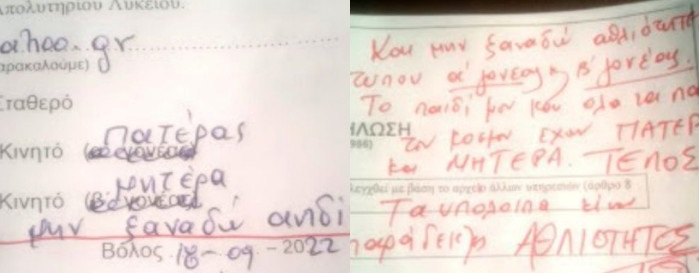 Απολυτηρίου Λυκείου.
ahoo.gr
παρακαλούμε)
Σταθερό
Πατέρας
Κινητό (α' γονέας)
μητέρα
Κινητό (β' γονέας)
μην ξαναδώ αηδί
Βόλος 18-09-2022
Και μην ξαναδώ αθλιότητε
τύπου α' γονέας ή β' γονέας.
Το παιδί μου και όλα τα πα
ΗΛΩΣΗ
986)
του κόσμου έχουν ΠΑΤΕΡ
και ΜΗΤΕΡΑ. ΤΕΛΟΣ
λεγχθεί με βάση το αρχείο άλλων υπηρεσιών (άρθρο 8
Τα υπόλοιπα είναι
ΑΘΛΙΟΤΗΤΟΣ